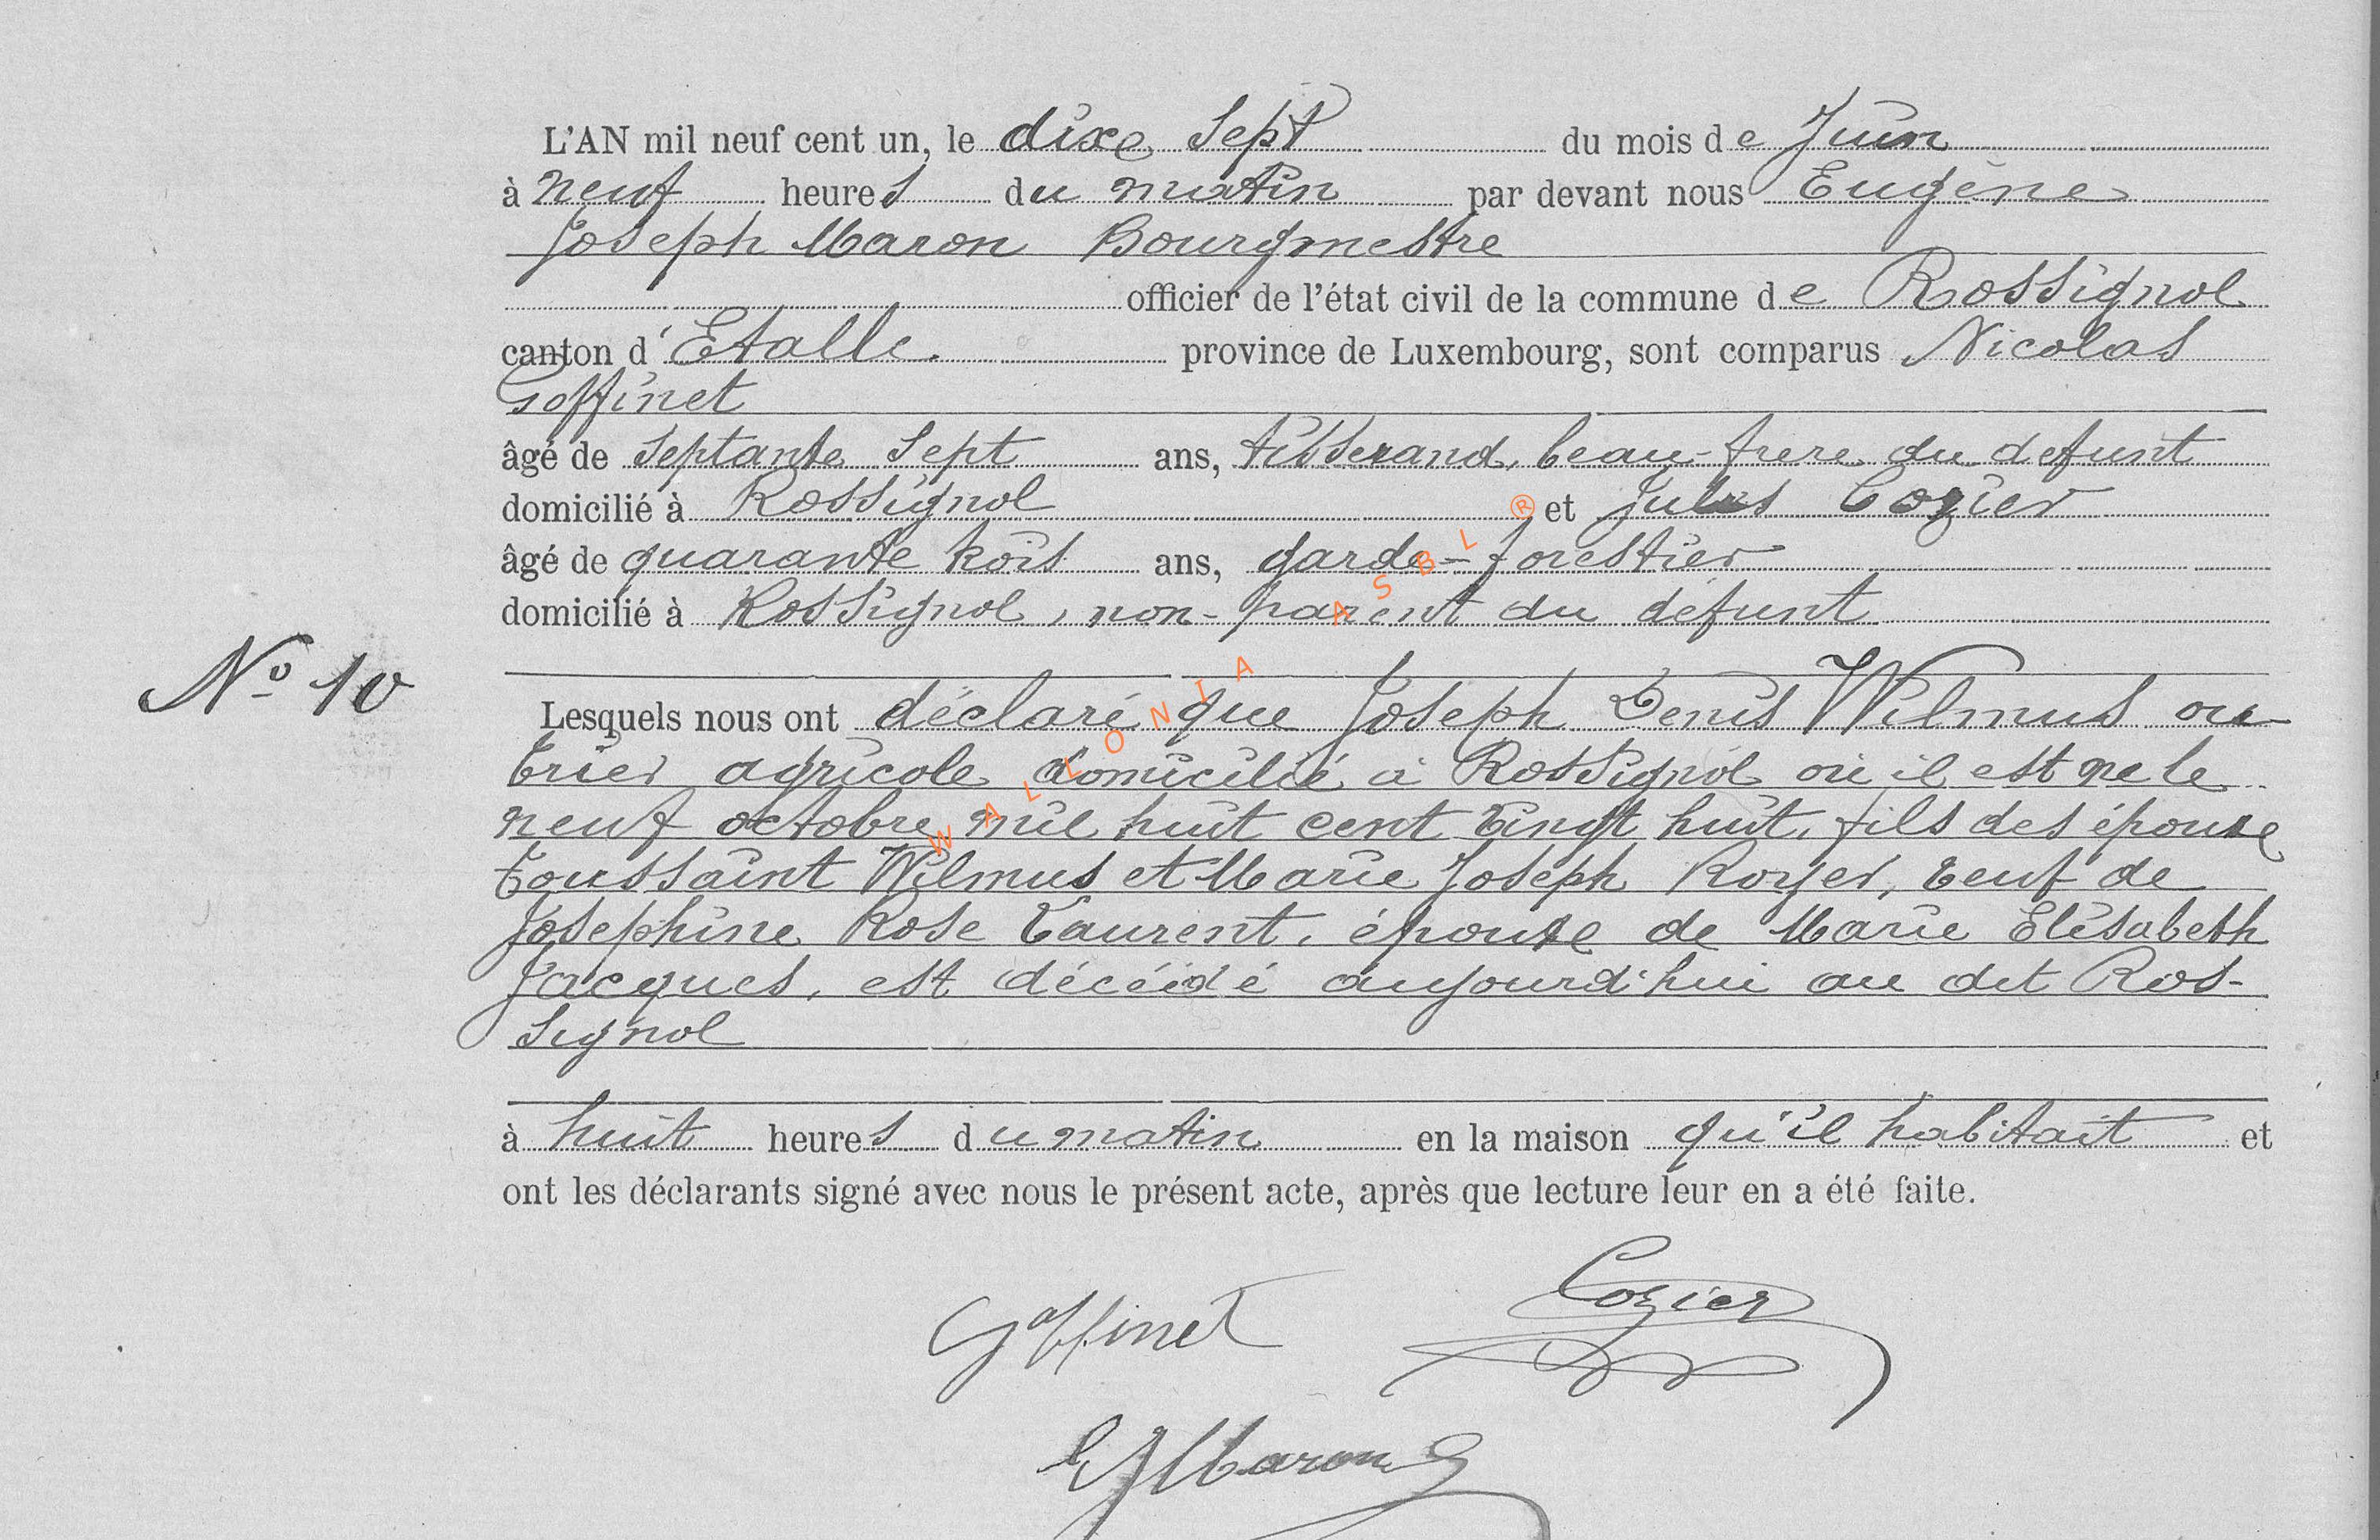 L'AN mil neuf cent un, le dixe Sept du mois de Juin
à neuf heures du matin par devant nous Eugène
Joseph Maron Bourgmestre
officier de l'état civil de la commune de Rossignol
canton d'Etalle. province de Luxembourg, sont comparus Nicolas
Goffinet
âgé de Septante Sept ans, tisserand, beau-frere du defunt
domicilié à Rossignol et Jules Cozier
âgé de quarante trois ans, garde-forestier
domicilié à Rossignol, non-parent du défunt
N° 10
Lesquels nous ont déclaré que Joseph Denis Wilmus ou-
vrier agricole domicilié à Rossignol où il est né le
neuf octobre mil huit cent vingt huit, fils des époux
Toussaint Wilmus et Marie Joseph Royer, veuf de
Josephine Rose Laurent, époux de Marie Elisabeth
Jacques, est décéidé aujourd'hui au dit Ros-
signol
à huit heures du matin en la maison qu'il habitait et
ont les déclarants signé avec nous le présent acte, après que lecture leur en a été faite.
Goffinet Cozier
EJMaron
WALLONIA ASBL ®